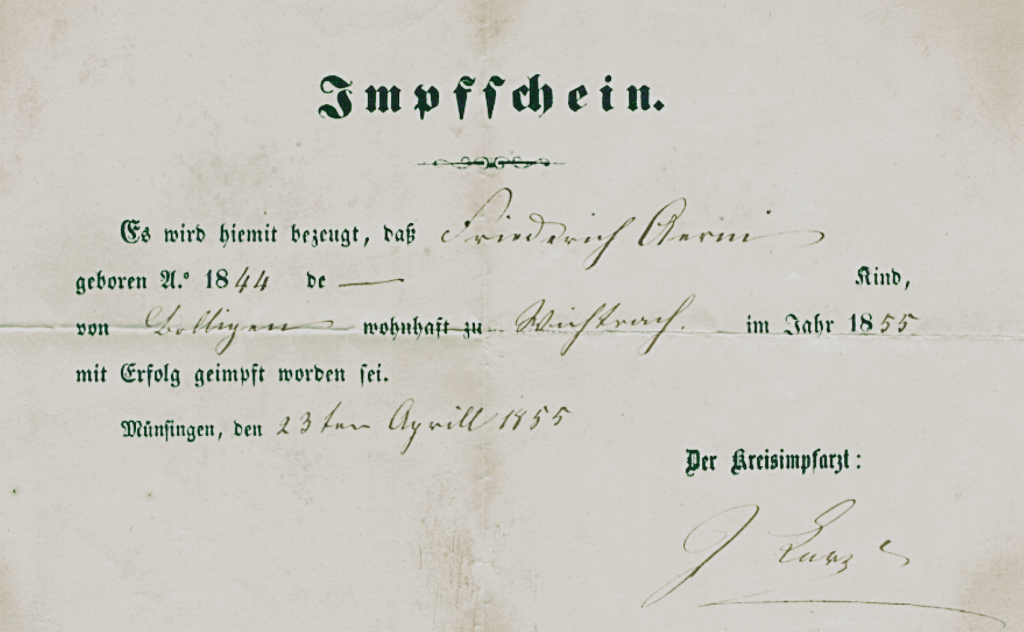 Impfschein.
Es wird hiemit bezeugt, daß Friederich Aerni
geboren A.º 1844 de — Kind,
von Bolligen wohnhaft zu Wichtrach. im Jahr 1855
mit Erfolg geimpft worden sei.
Münsingen, den 23ten Aprill 1855
Der Kreisimpfarzt:
J Kurz